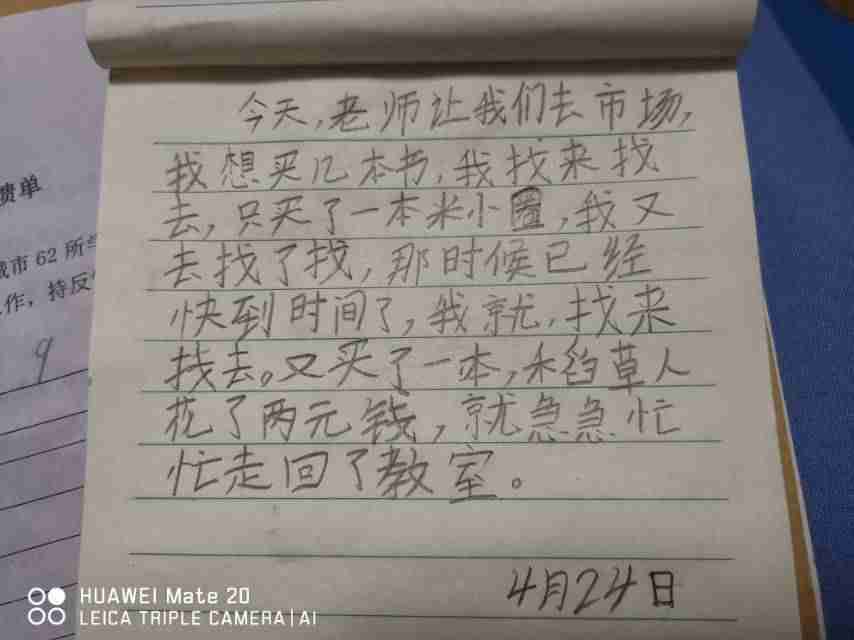 今天,老师让我们去市场,
我想买几本书,我找来找
去,只买了一本米小圈,我又
去找了找,那时候已经
快到时间了,我就,找来
找去。又买了一本,稻草人
花了两元钱,就急急忙
忙走回了教室。
4月24日
馈单
城市62所学
作,持反
9
HUAWEI Mate 20
LEICA TRIPLE CAMERA|AI